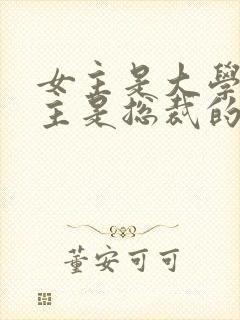 女主是大學
主是總裁的
董安可可